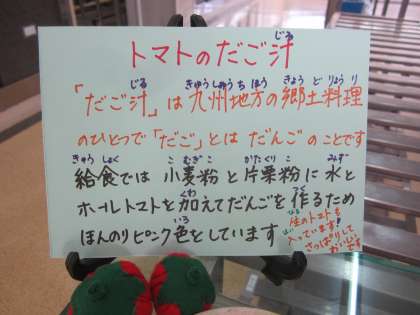 トマトのだご汁
じる
「だご汁」は九州地方の郷土料理
じる きゅうしゅうちほう きょうどりょうり
のひとつで「だご」とは だんごのことです
給食では 小麦粉と片栗粉に 水と
きゅうしょく こむぎこ かたくりこ みず
ホールトマトを加えてだんごを作るため
くわ つく
ほんのりピンク色をしています
いろ
生のトマトも
入っています!
さっぱりして
おいしいです